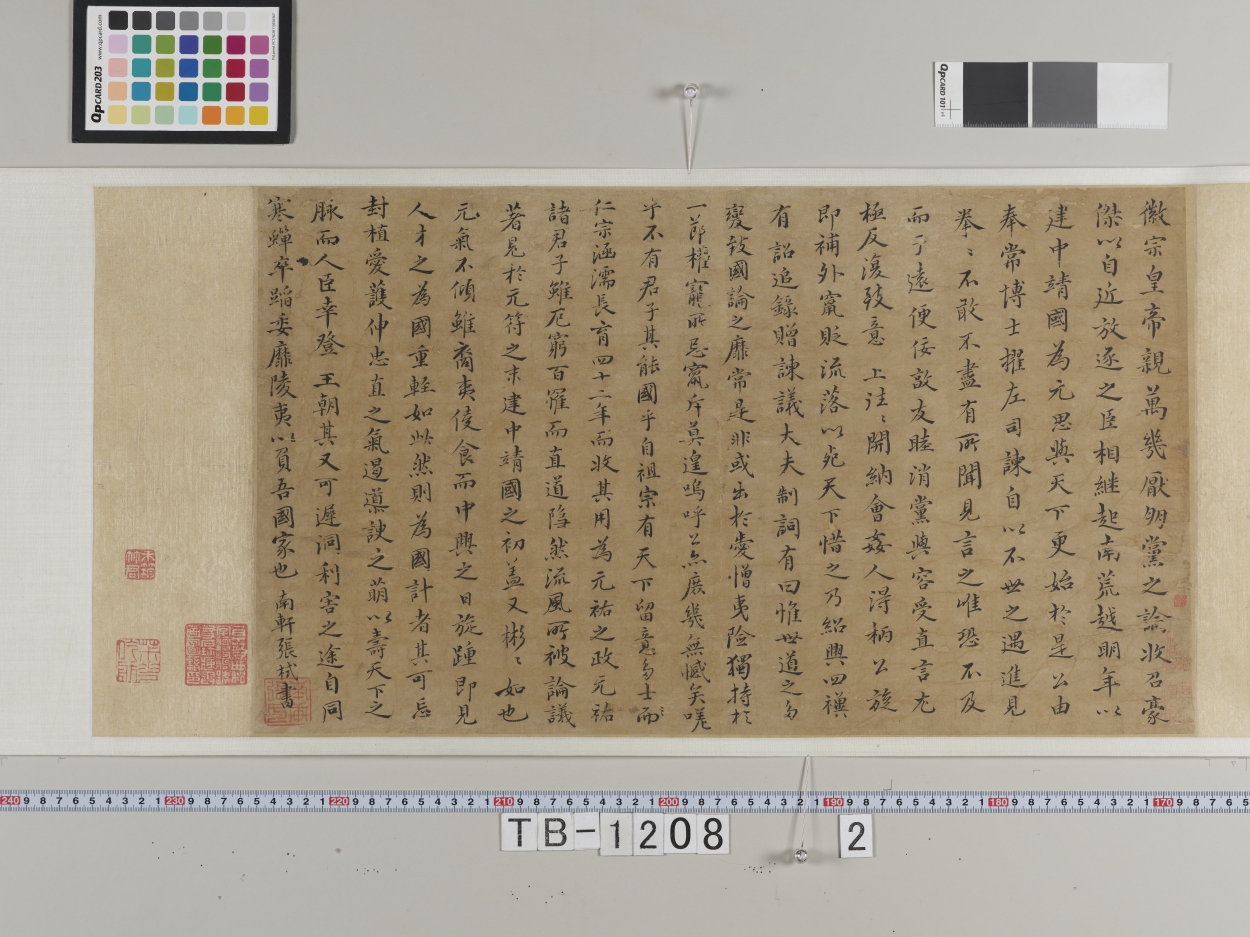 徽宗皇帝親萬幾厭朋黨之論收召豪
傑以自近放逐之臣相継起南荒越明年以
建中靖國為元思與天下更始於是公由
奉常博士擢左司諫自以不世之遇進見
拳〻不敢不盡有所聞見言之唯恐不及
而于遠便佞敦友睦消黨與容受直言尤
極反復致意 上注〻開納會姦人得柄公旋
即補外竄貶流落以死天下惜之乃紹興四禩
有詔追錄贈諫議大夫制詞有曰惟世道之多
變致國論之靡常是非或出於愛憎夷險獨持於
一節權寵所忌竄斥莫遑嗚呼公亦庶幾無憾矣嗟
乎不有君子其能國乎自祖宗有天下留意多士而
仁宗涵濡長育四十二年而收其用為元祐之政元祐
諸君子雖厄窮百罹而直道隐然流風所被論議
著見於元符之末建中靖國之初盖又彬〻如也
元氣不傾雖裔夷侵食而中興之日旋踵即見
人才之為國重輕如此然則為國計者其可忘
封植愛護伸忠直之氣遏導諛之萠以壽天下之
脉而人臣幸登 王朝其又可遲洄利害之途自同
寒蟬卒蹈委靡陵夷以負吾國家也 南軒張栻書
TB-1208
2
QpCARD 203
www.qpcard.com
QpCARD 101
240 9 8 7 6 5 4 3 2 1 230 9 8 7 6 5 4 3 2 1 220 9 8 7 6 5 4 3 2 1 210 9 8 7 6 5 4 3 2 1 200 9 8 7 6 5 4 3 2 1 190 9 8 7 6 5 4 3 2 1 180 9 8 7 6 5 4 3 2 1 170 9 8 7 6 5